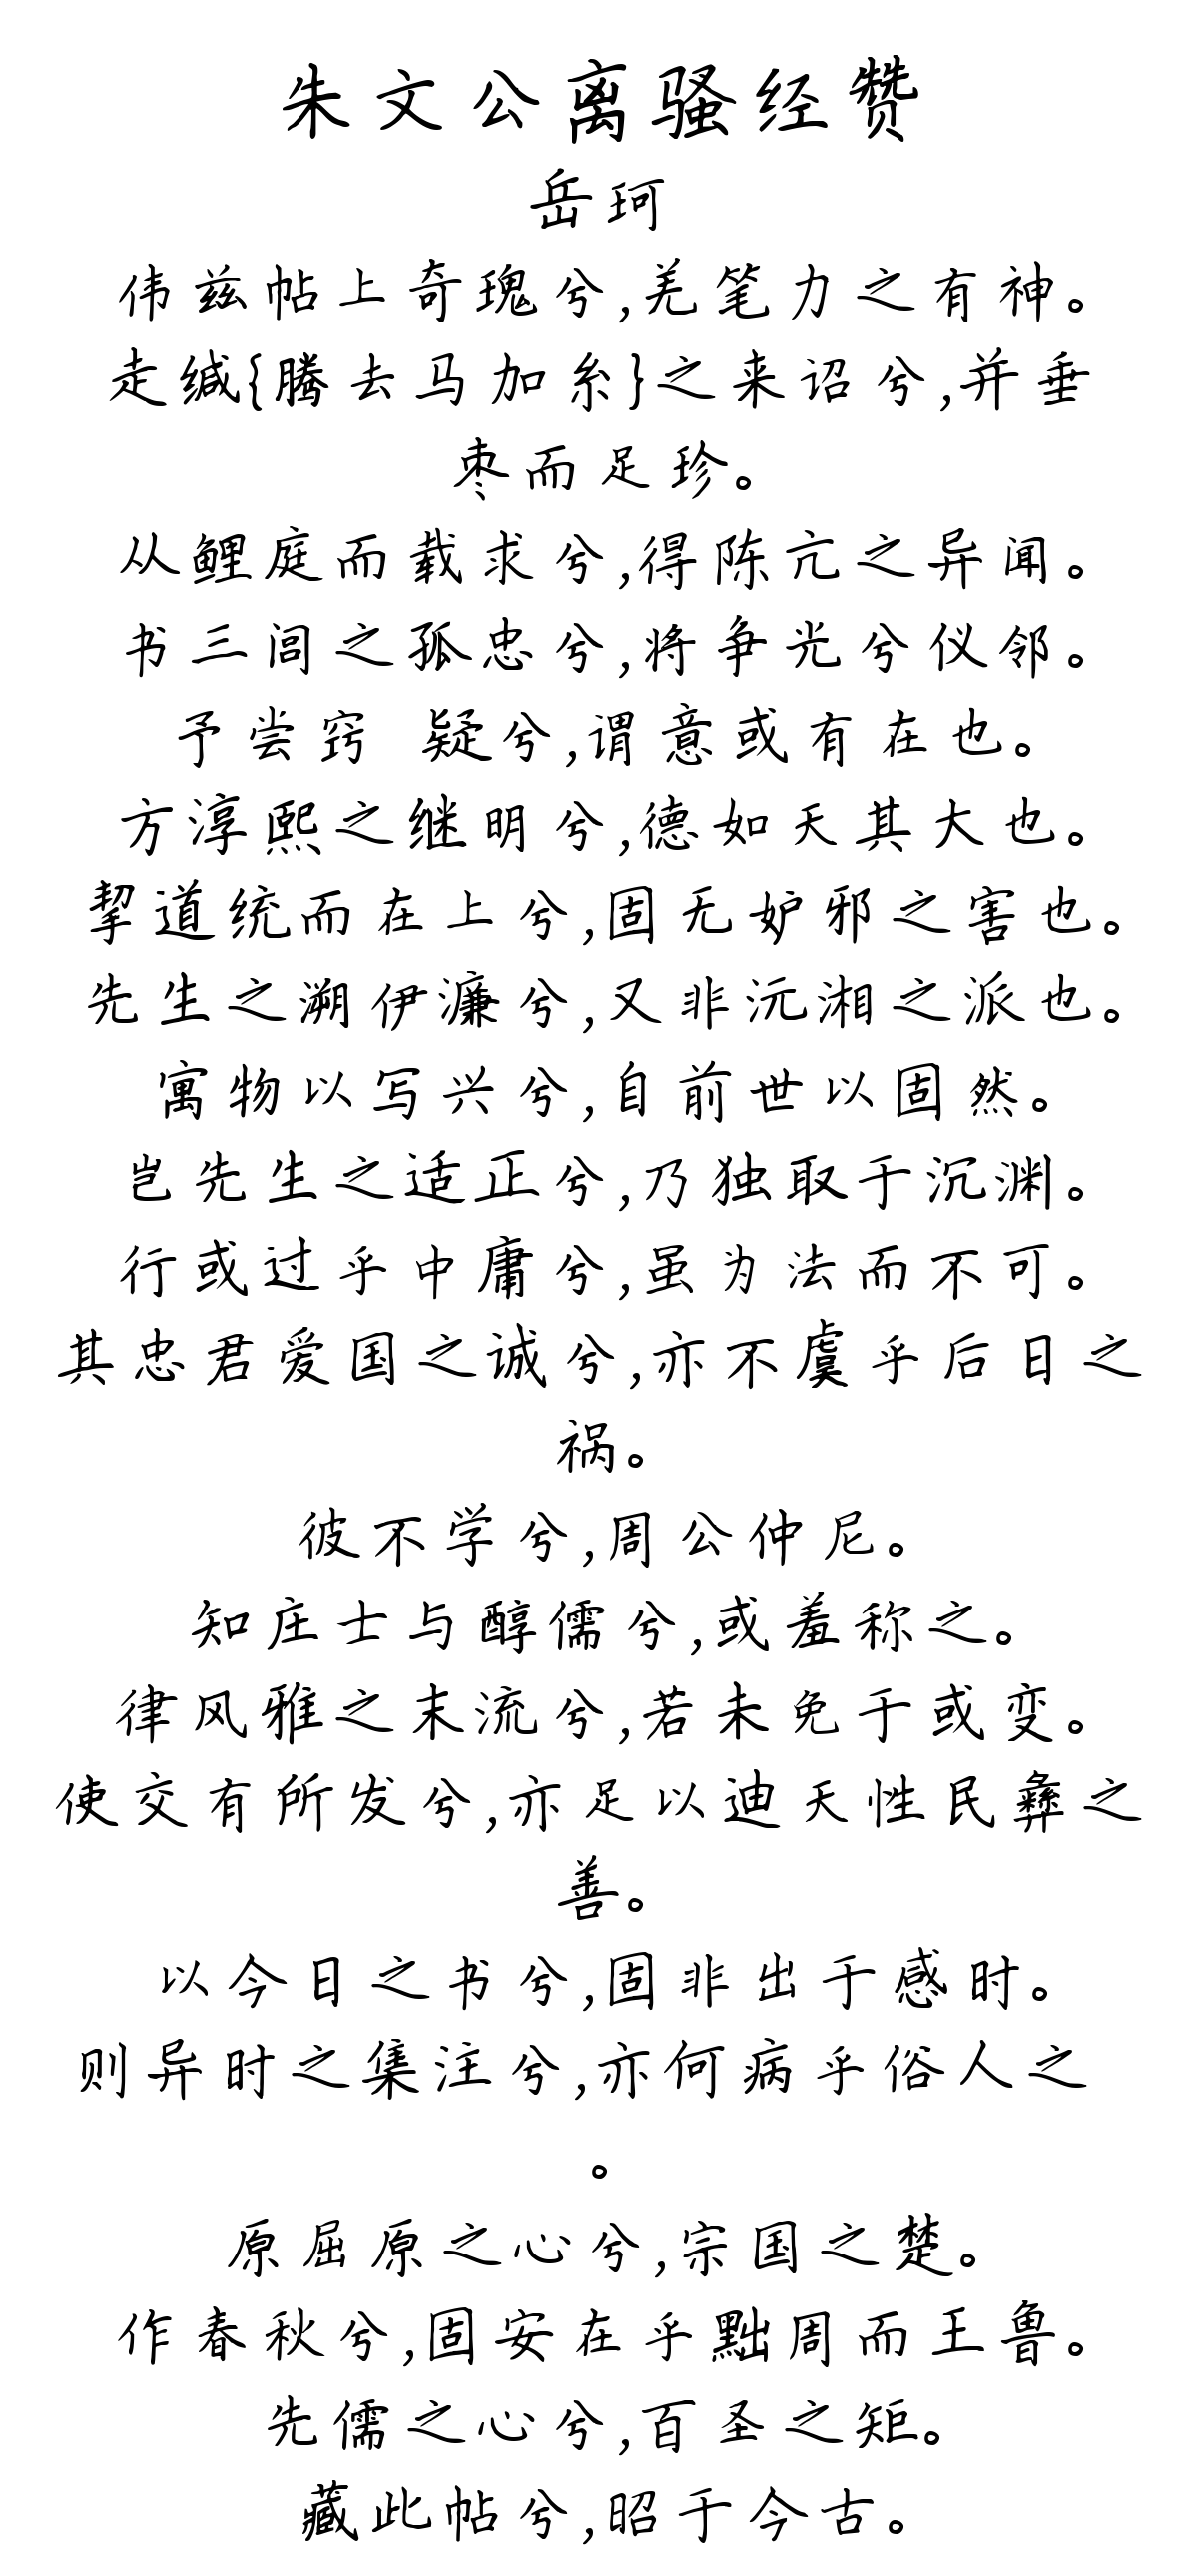 朱文公离骚经赞
岳珂
伟兹帖上奇瑰兮,羌笔力之有神。
走缄{腾去马加糸}之来诏兮,并垂
枣而足珍。
从鲤庭而载求兮,得陈亢之异闻。
书三闾之孤忠兮,将争光兮仪邻。
予尝窍 疑兮,谓意或有在也。
方淳熙之继明兮,德如天其大也。
挈道统而在上兮,固无妒邪之害也。
先生之溯伊濂兮,又非沅湘之派也。
寓物以写兴兮,自前世以固然。
岂先生之适正兮,乃独取于沉渊。
行或过乎中庸兮,虽为法而不可。
其忠君爱国之诚兮,亦不虞乎后日之
祸。
彼不学兮,周公仲尼。
知庄士与醇儒兮,或羞称之。
律风雅之末流兮,若未免于或变。
使交有所发兮,亦足以迪天性民彝之
善。
以今日之书兮,固非出于感时。
则异时之集注兮,亦何病乎俗人之
。
原屈原之心兮,宗国之楚。
作春秋兮,固安在乎黜周而王鲁。
先儒之心兮,百圣之矩。
藏此帖兮,昭于今古。